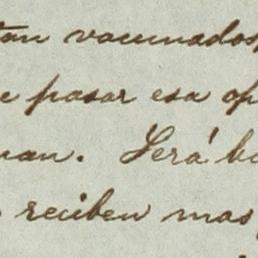 tan vacunados,
e pasar esa op
uan. Será bu
reciben mas